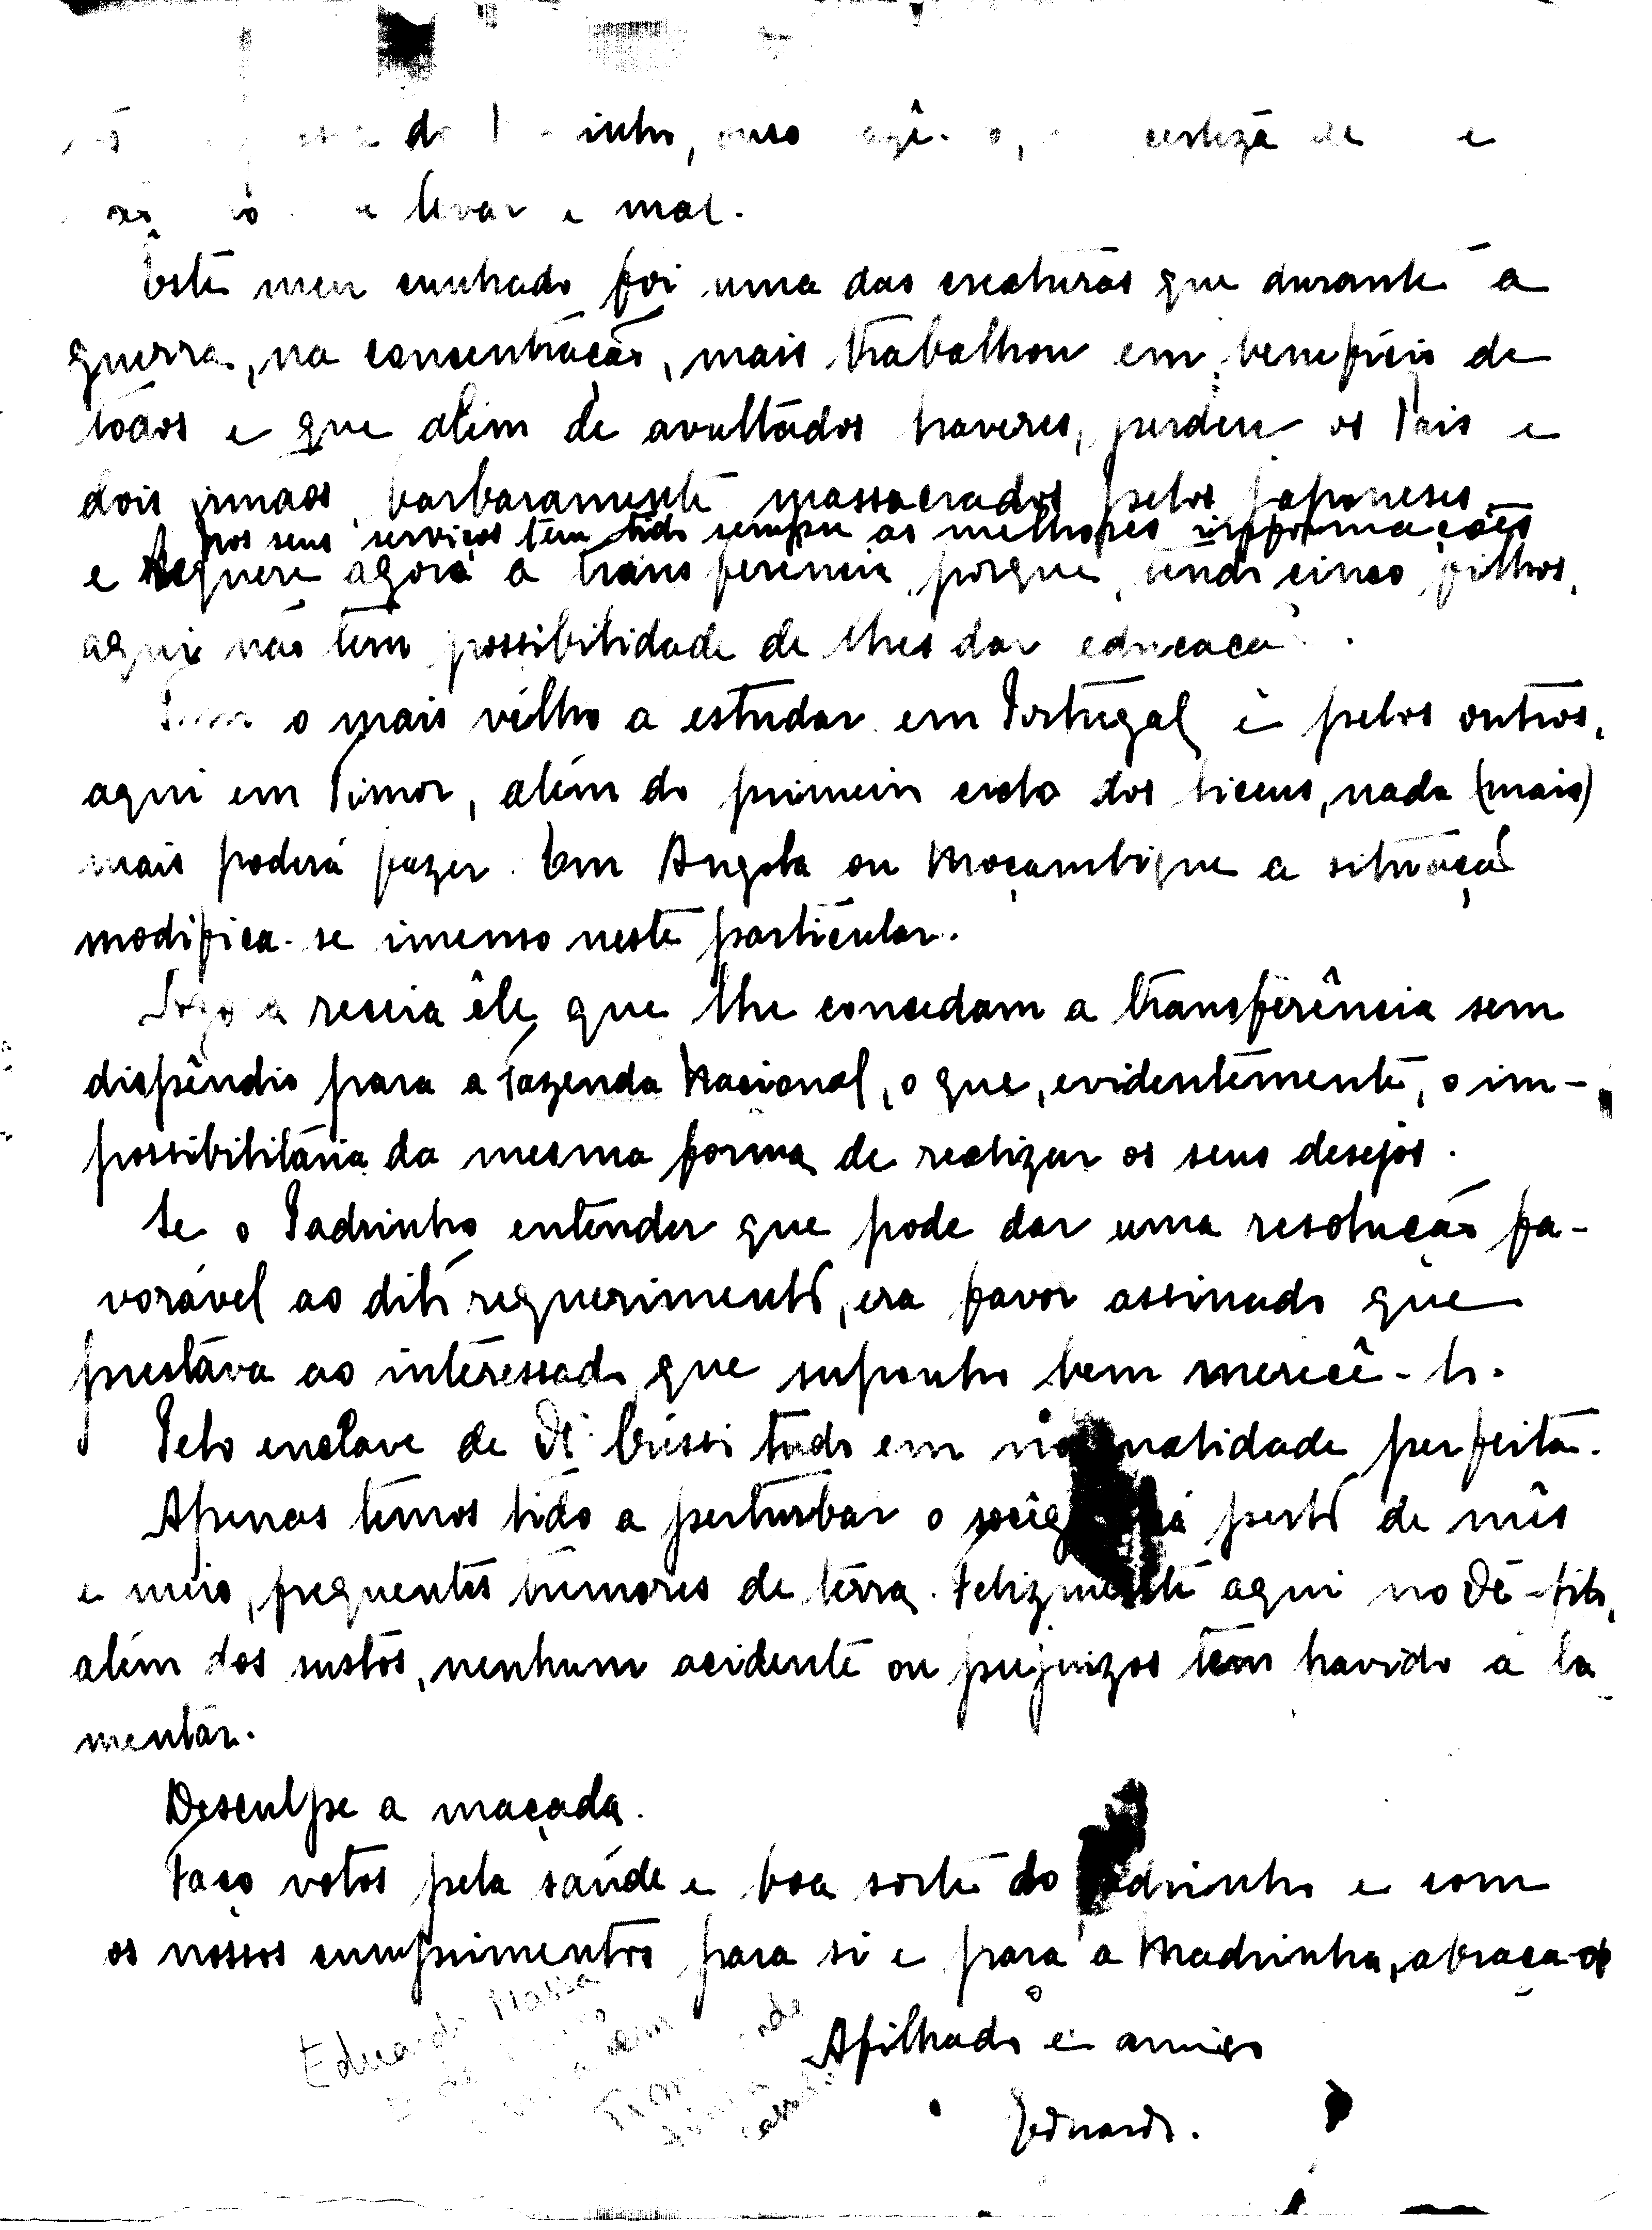 levar a mal.
Êste meu cunhado foi uma das creaturas que durante a
guerra, na concentração, mais trabalhou em benefício de
todos e que além de avultados haveres, perdeu os Pais e
dois irmãos barbaramente massacrados pelos japoneses.
nos seus serviços tem tido sempre as melhores informações
e Requere agora a transferencia porque, tendo cinco filhos,
aqui não tem possibilidade de lhes dar educação.
Tem o mais velho a estudar em Portugal e pelos outros,
aqui em Timor, além do primeiro ciclo dos liceus, nada (mais)
mais poderá fazer. Em Angola ou Moçambique a situação
modifica-se imenso neste particular.
Agora receia êle que lhe concedam a transferência sem
dispêndio para a Fazenda Nacional, o que, evidentemente, o im-
possibilitaria da mesma forma de realizar os seus desejos.
Se o Padrinho entender que pode dar uma resolução fa-
vorável ao dito requerimento, era favor assinado que
prestava ao interessado que suponho bem merecê-lo.
Pelo enclave de Oé-Cússi tudo em normalidade perfeita.
Apenas temos tido a perturbar o há perto de mês
e meio, frequentes tremores de terra. Felizmente aqui no
além dos sustos, nenhum acidente ou prejuizos tem havido a la
mentar.
Desculpe a maçada.
Faço votos pela saúde e boa sorte do Padrinho e com
os nossos cumprimentos para si e para a Madrinha, abraça-o
o
Afilhado e amigo
Eduardo.
Eduardo Massa